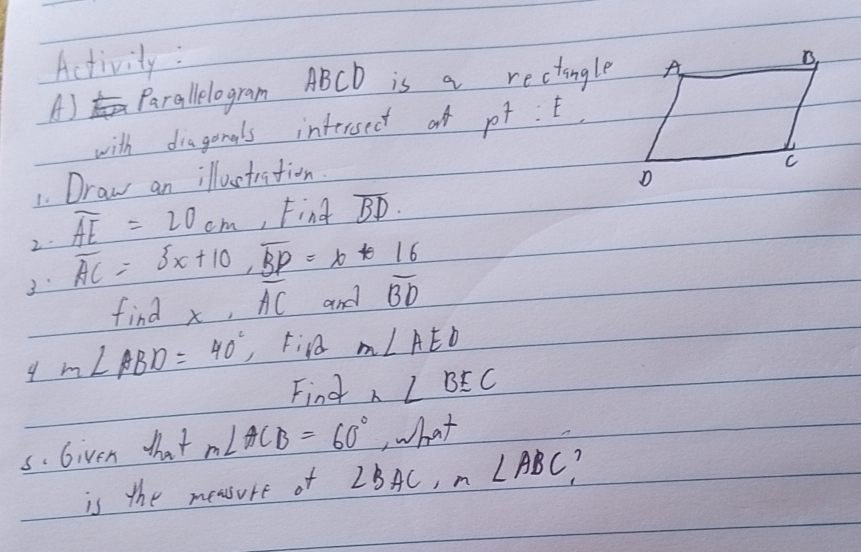 Activity :
A) Parallelogram ABCD is a rectangle
with diagonals intersect at pt : E.
1. Draw an illustration.
2. AE = 20 cm, Find BD.
3. AC = 3x+10, BD = x + 16
find x, AC and BD
4 m∠ABD = 40°, Find m∠AED
Find ∠BEC
5. Given that m∠ACB = 60°, what
is the measure of ∠BAC, m ∠ABC?
A B
D C